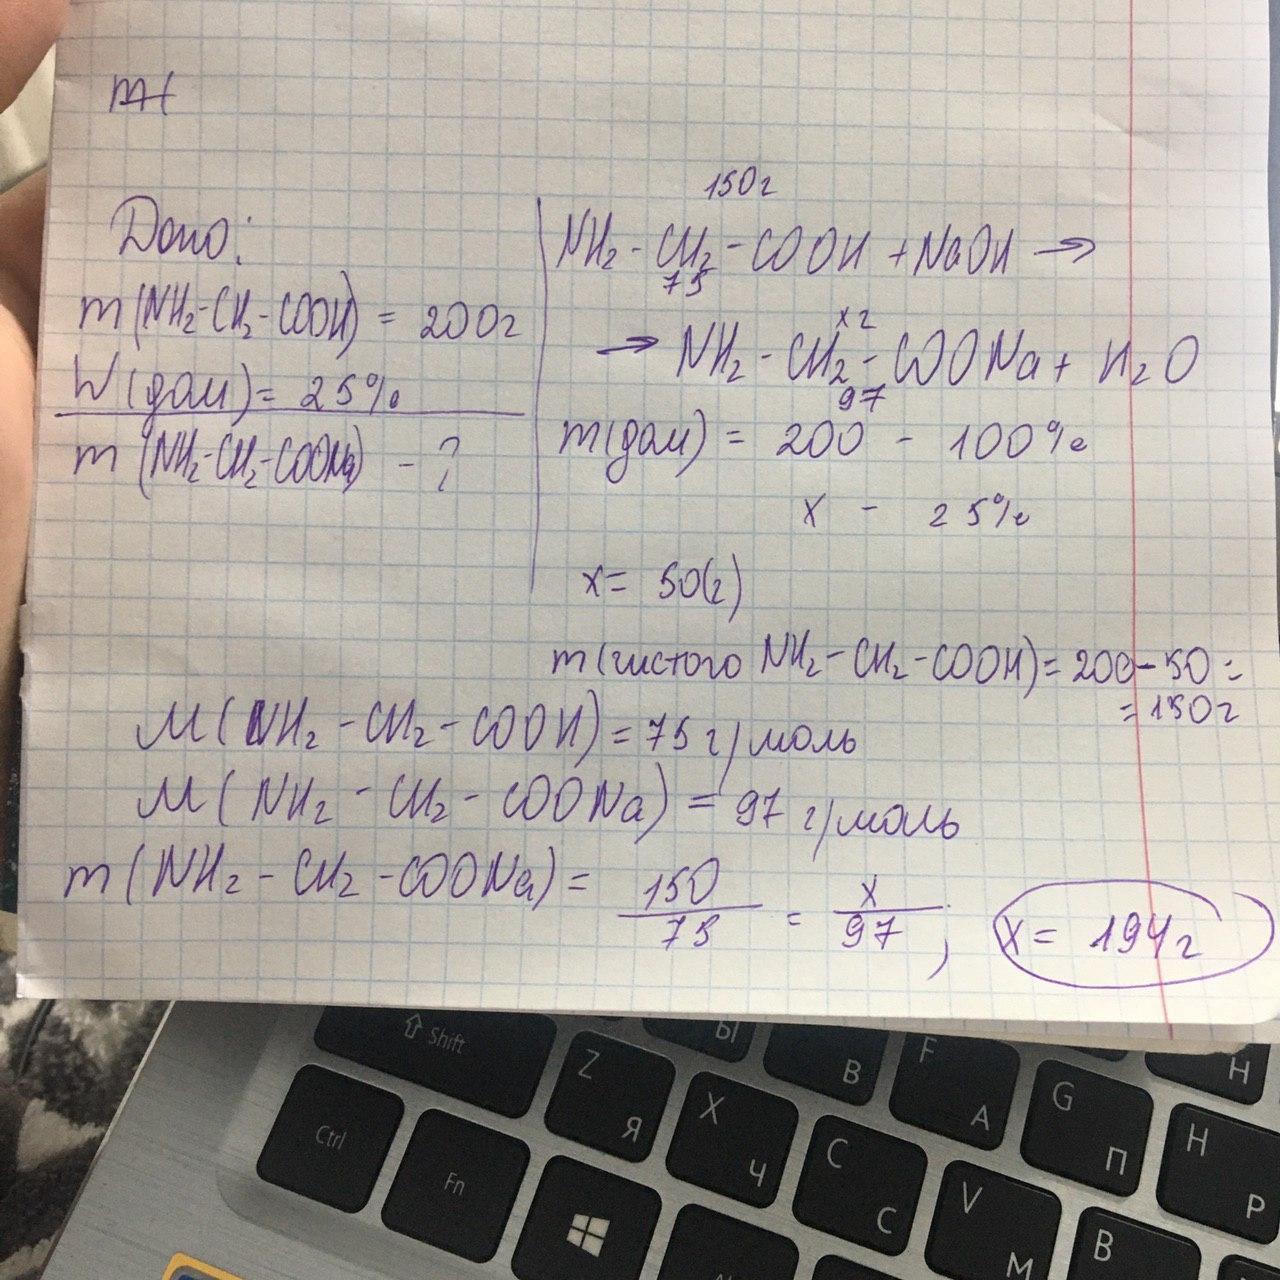 m(
Дано:
m(NH₂-CH₂-COOH) = 200г
W(дом) = 25%
m(NH₂-CH₂-COONa) - ?
150г
NH₂-CH₂-COOH + NaOH →
75
xг
→ NH₂-CH₂-COONa + H₂O
97
m(дом) = 200 - 100%
x - 25%
x = 50(г)
m(чистого NH₂-CH₂-COOH) = 200-50=
=150г
M(NH₂-CH₂-COOH) = 75 г/моль
M(NH₂-CH₂-COONa) = 97 г/моль
m(NH₂-CH₂-COONa) = 150/75 = x/97; x = 194г
Shift
Ы
Z Я
X Ч
C С
B
F А
G П
H Р
Н
V М
B
Ctrl
Fn